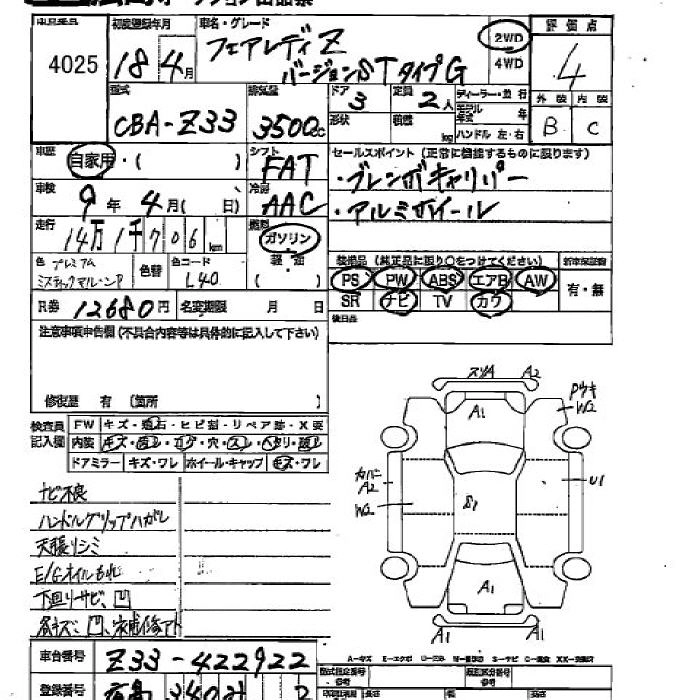 4025
初度登録年月
18年4月
車名・グレード
フェアレディZ
バージョンST タイプG
2WD
4WD
評価点
4
外装 内装
B C
型式
CBA-Z33
排気量
3500cc
ドア
3
定員
2人
形状
積載
kg
ディーラー・並行
モデル年式 年
ハンドル 左・右
車歴
自家用・( )
シフト
FAT
セールスポイント (正常に機能するものに限ります)
・ブレンボキャリパー
・アルミホイール
車検
9年4月( 日)
冷房
AAC
走行
14万1千706km
燃料
ガソリン
軽油
( )
色 プレミアム
色替
色コード
L40
装備品 (純正品に限り○をつけてください)
新車保証書
PS PW ABS エアB AW
SR ナビ TV カワ
有・無
R券 12680円
名変期限 月 日
後日品
注意事項申告欄 (不具合内容等は具体的に記入して下さい)
修復歴 有 (箇所 )
検査員記入欄
FW キズ・飛石・ヒビ割・リペア跡・X要
内装 キズ・汚レ・コゲ・穴・スレ・ヘタリ・破レ
ドアミラー キズ・ワレ ホイール・キャップ キズ・ワレ
ナビ不良
ハンドルグリップハガレ
天張りシミ
E/Gオイルもれ
下廻りサビ、凹
各キズ、凹、補修アト
スリA A2
A1
Pウキ
W2
カバー
A2
W2
U1
S1
A1
A1 A1
A-キズ E-エクボ U-凹み
車台番号 Z33-422922
登録番号 広島 340